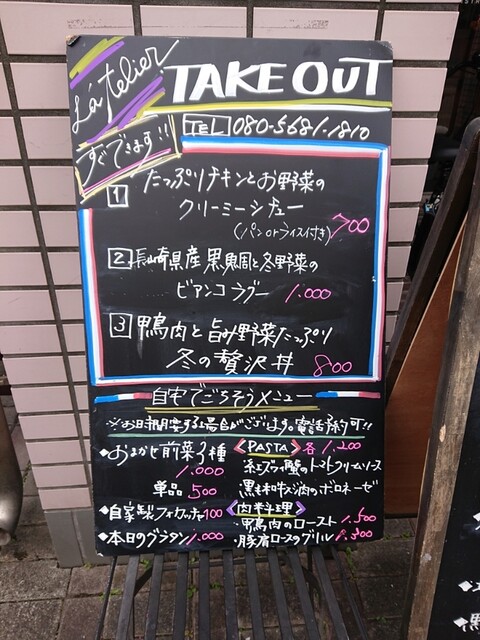 L'atelier
TAKE OUT
TEL 080-5681-1810
すぐできます!!
1 たっぷりチキンとお野菜の
クリーミーシチュー
(パンorライス付き) 700
2 長崎県産黒鯛と冬野菜の
ビアンコラグー 1.000
3 鴨肉と旨み野菜たっぷり
冬の贅沢丼 800
自宅でごちそうメニュー
※お日に 場合がございます。電話予約可!!
◆おまかせ前菜3種
1.000
単品 500
◆自家製フォカッチャ 100
◆本日のグラタン 1.000
《PASTA》各1.200
・紅ズワイ蟹のトマトクリームソース
・黒毛和牛スジ肉のボロネーゼ
《肉料理》
・鴨胸肉のロースト 1.500
・豚肩ロースのグリル 1.300